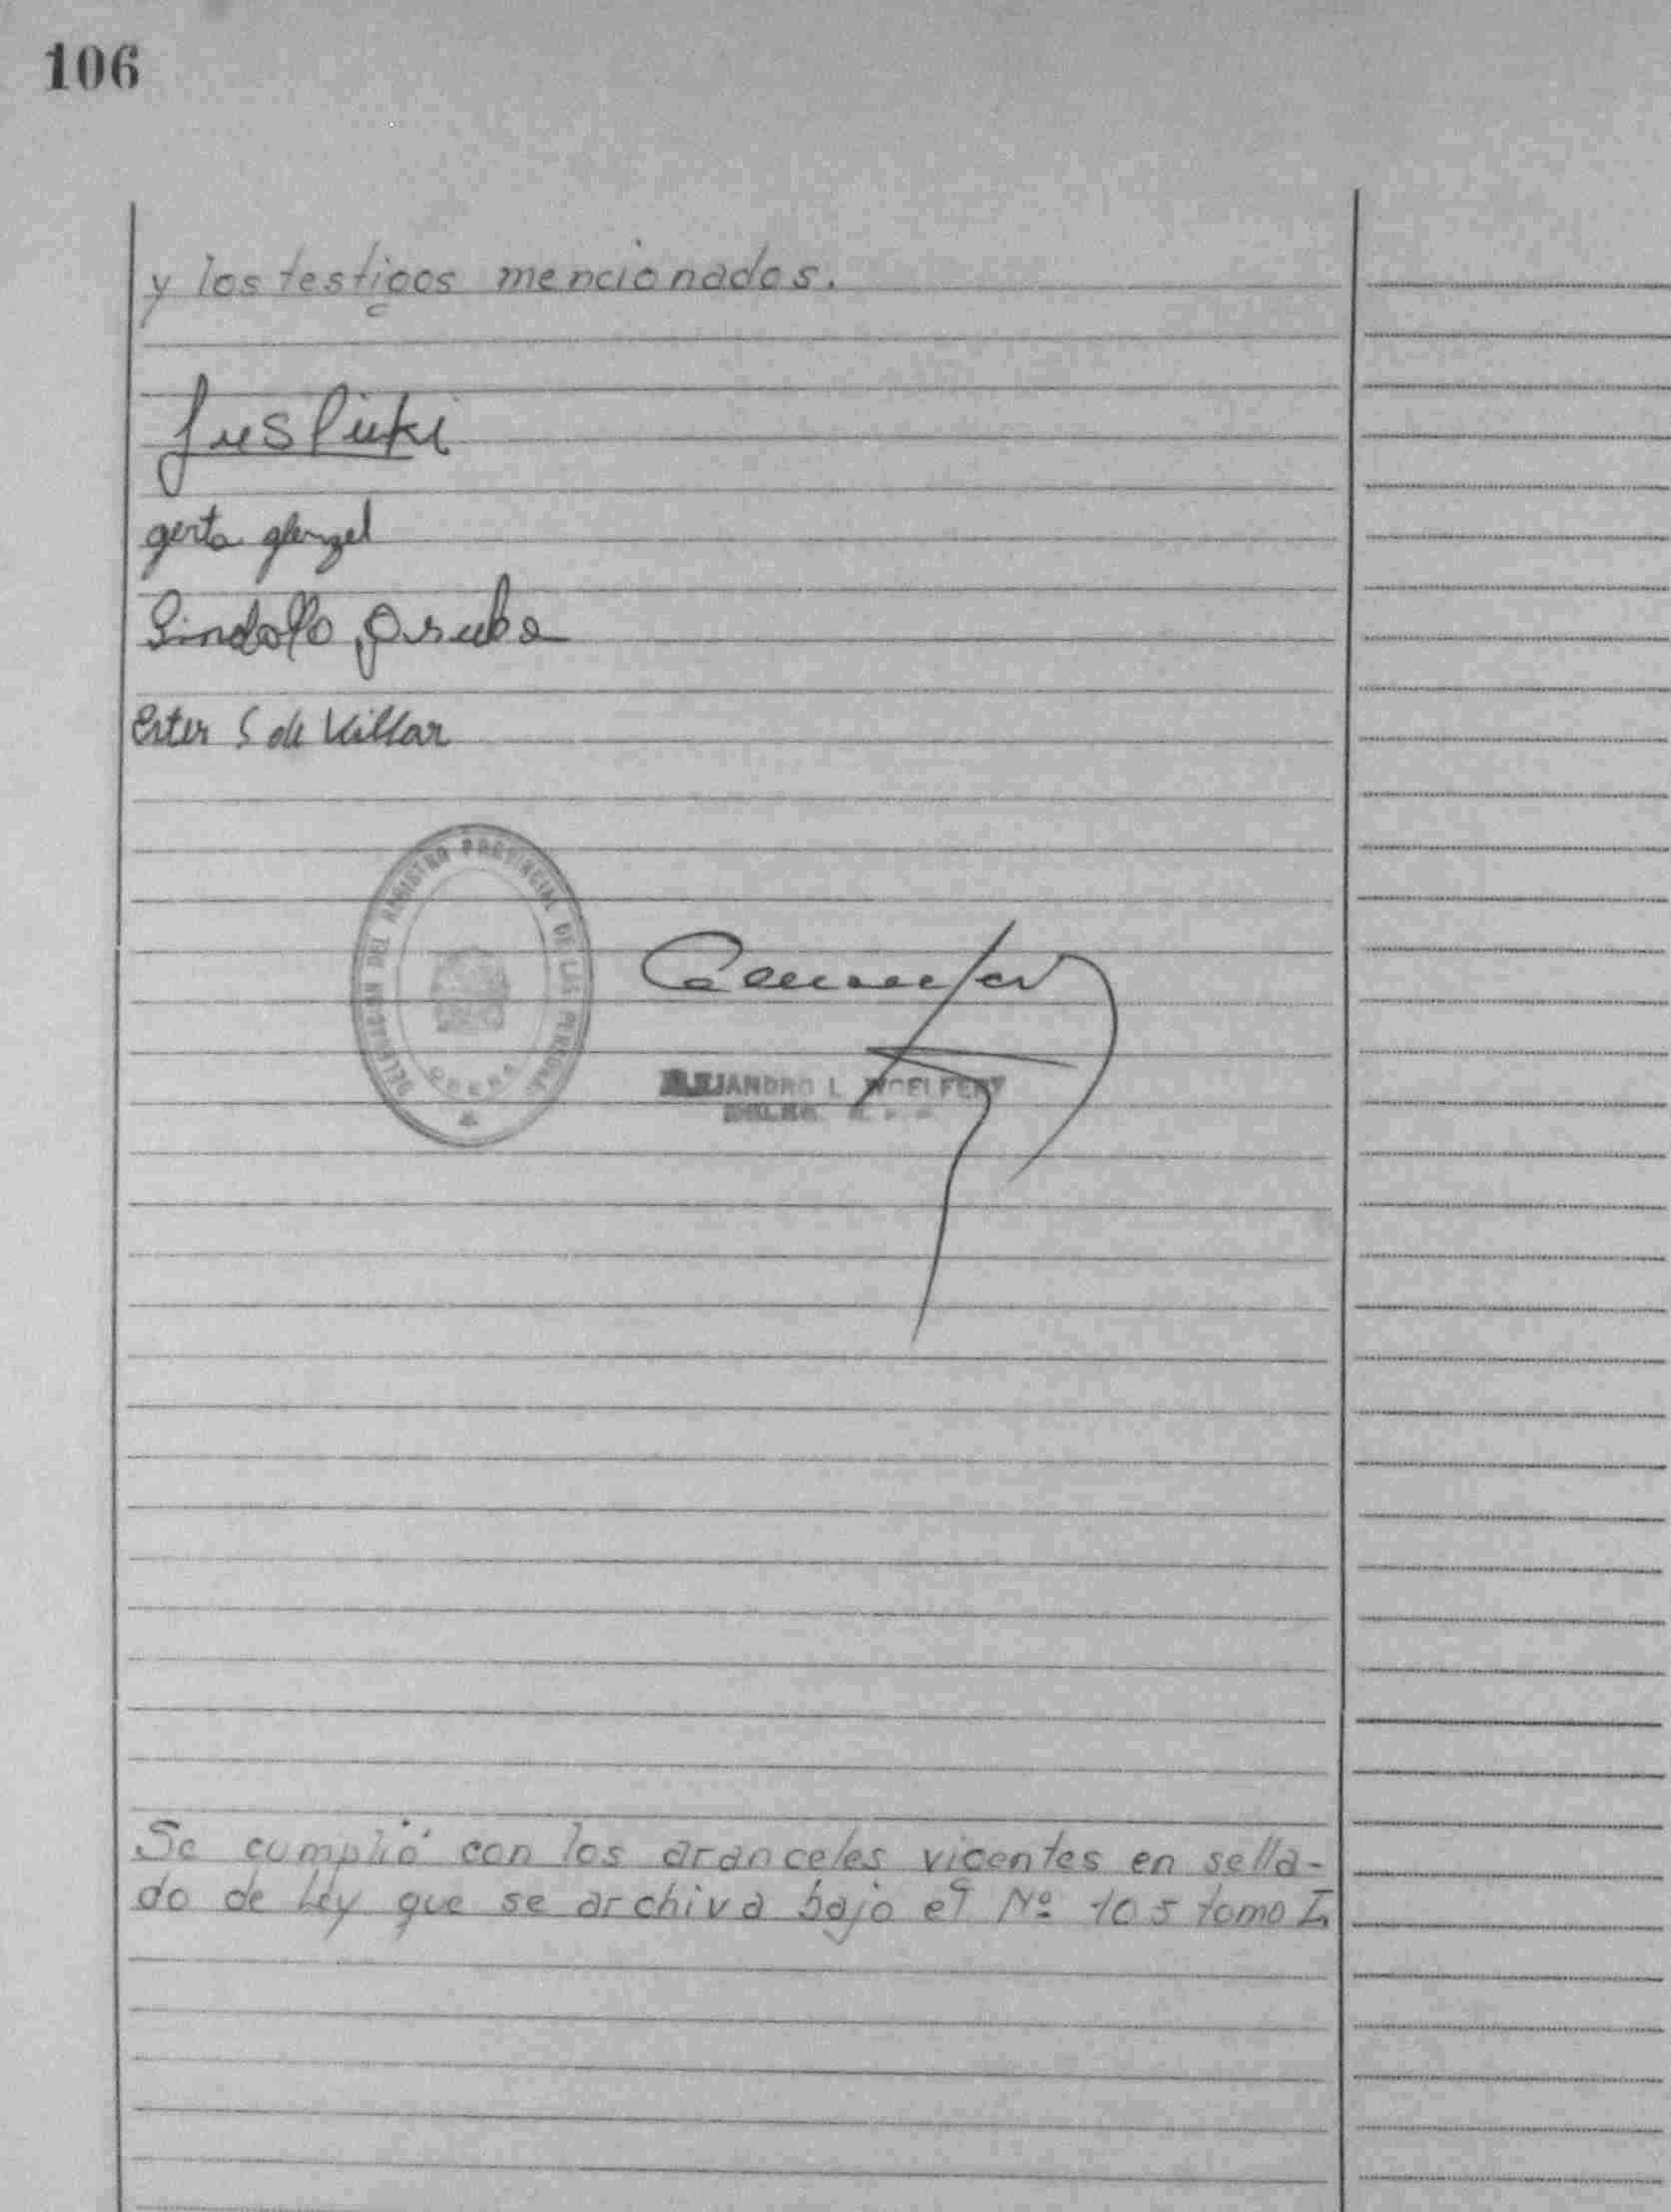 106
y los testigos mencionados.
gerta glenzel
Lindolfo
Ester S de Villar
DELEGACION DEL REGISTRO PROVINCIAL DE LAS PERSONAS
OBERA
ALEJANDRO L. WOELFERT
Se cumplió con los aranceles vigentes en sella-
do de Ley que se archiva bajo el Nº 105 tomo I